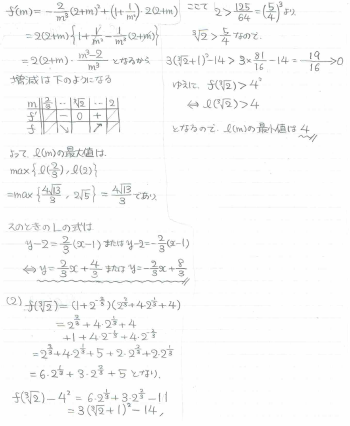 f'(m) = -2/m³ (2+m)² + (1 + 1/m²)·2(2+m)
= 2(2+m){1 + 1/m² - 1/m³(2+m)}
= 2(2+m)· (m³-2)/m³ となるから
増減は下のようになる
m | 2/3 | … | ∛2 | … | 2
f' | | - | 0 | + |
f | | ↘ | | ↗ |
よって l(m)の最大値は
max{l(2/3), l(2)}
= max{4√13/3, 2√5} = 4√13/3 であり
このときのLの式は
y-2 = 2/3(x-1) または y-2 = -2/3(x-1)
⇔ y = 2/3x + 4/3 または y = -2/3x + 8/3
(2) f(∛2) = (1 + 2^(-2/3))(2^(2/3) + 4·2^(1/3) + 4)
= 2^(2/3) + 4·2^(1/3) + 4
+ 1 + 4·2^(-1/3) + 4·2^(-2/3)
= 2^(2/3) + 4·2^(1/3) + 5 + 2·2^(2/3) + 2·2^(1/3)
= 6·2^(1/3) + 3·2^(2/3) + 5 となり、
f(∛2) - 4² = 6·2^(1/3) + 3·2^(2/3) - 11
= 3(∛2 + 1)² - 14,
ここで 2 > 125/64 = (5/4)³ より
∛2 > 5/4 なので、
3(∛2+1)² - 14 > 3 × 81/16 - 14 = 19/16 > 0
ゆえに f(∛2) > 4²
⇔ l(∛2) > 4
となるので、l(m)の最小値は 4